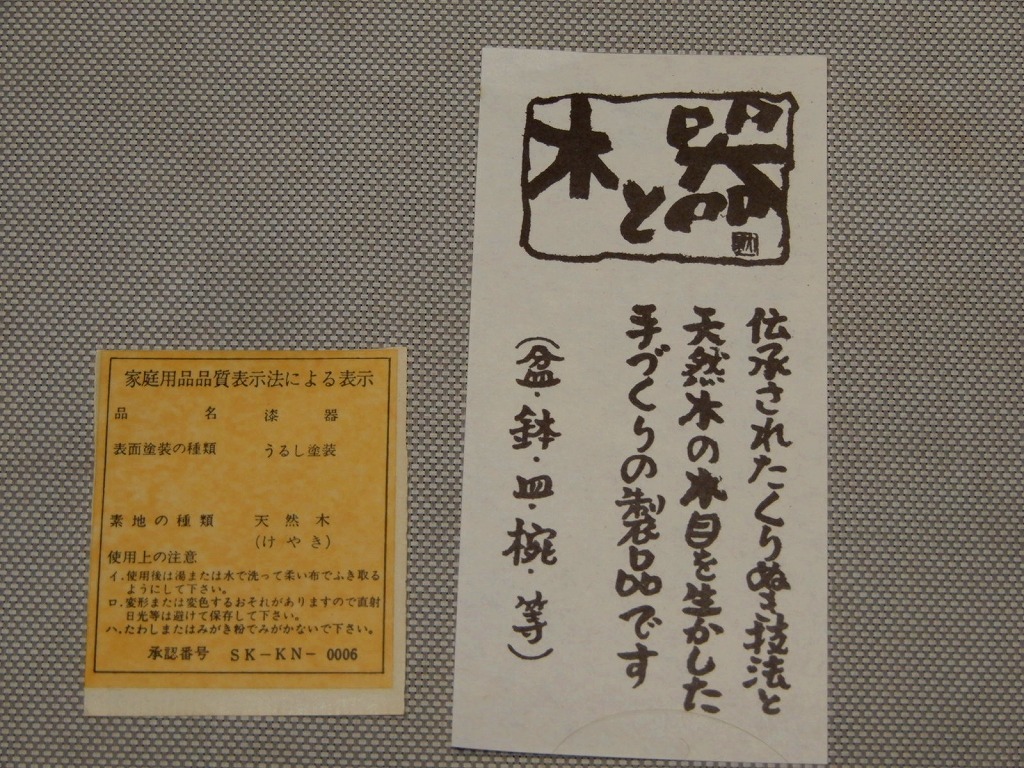 家庭用品品質表示法による表示
品名 漆器
表面塗装の種類 うるし塗装
素地の種類 天然木
(けやき)
使用上の注意
イ.使用後は湯または水で洗って柔い布でふき取る
ようにして下さい。
ロ.変形または変色するおそれがありますので直射
日光等は避けて保存して下さい。
ハ.たわしまたはみがき粉でみがかないで下さい。
承認番号 SK-KN-0006
木と器
伝承されたくりぬき技法と
天然木の木目を生かした
手づくりの製品です
(盆・鉢・皿・椀・等)